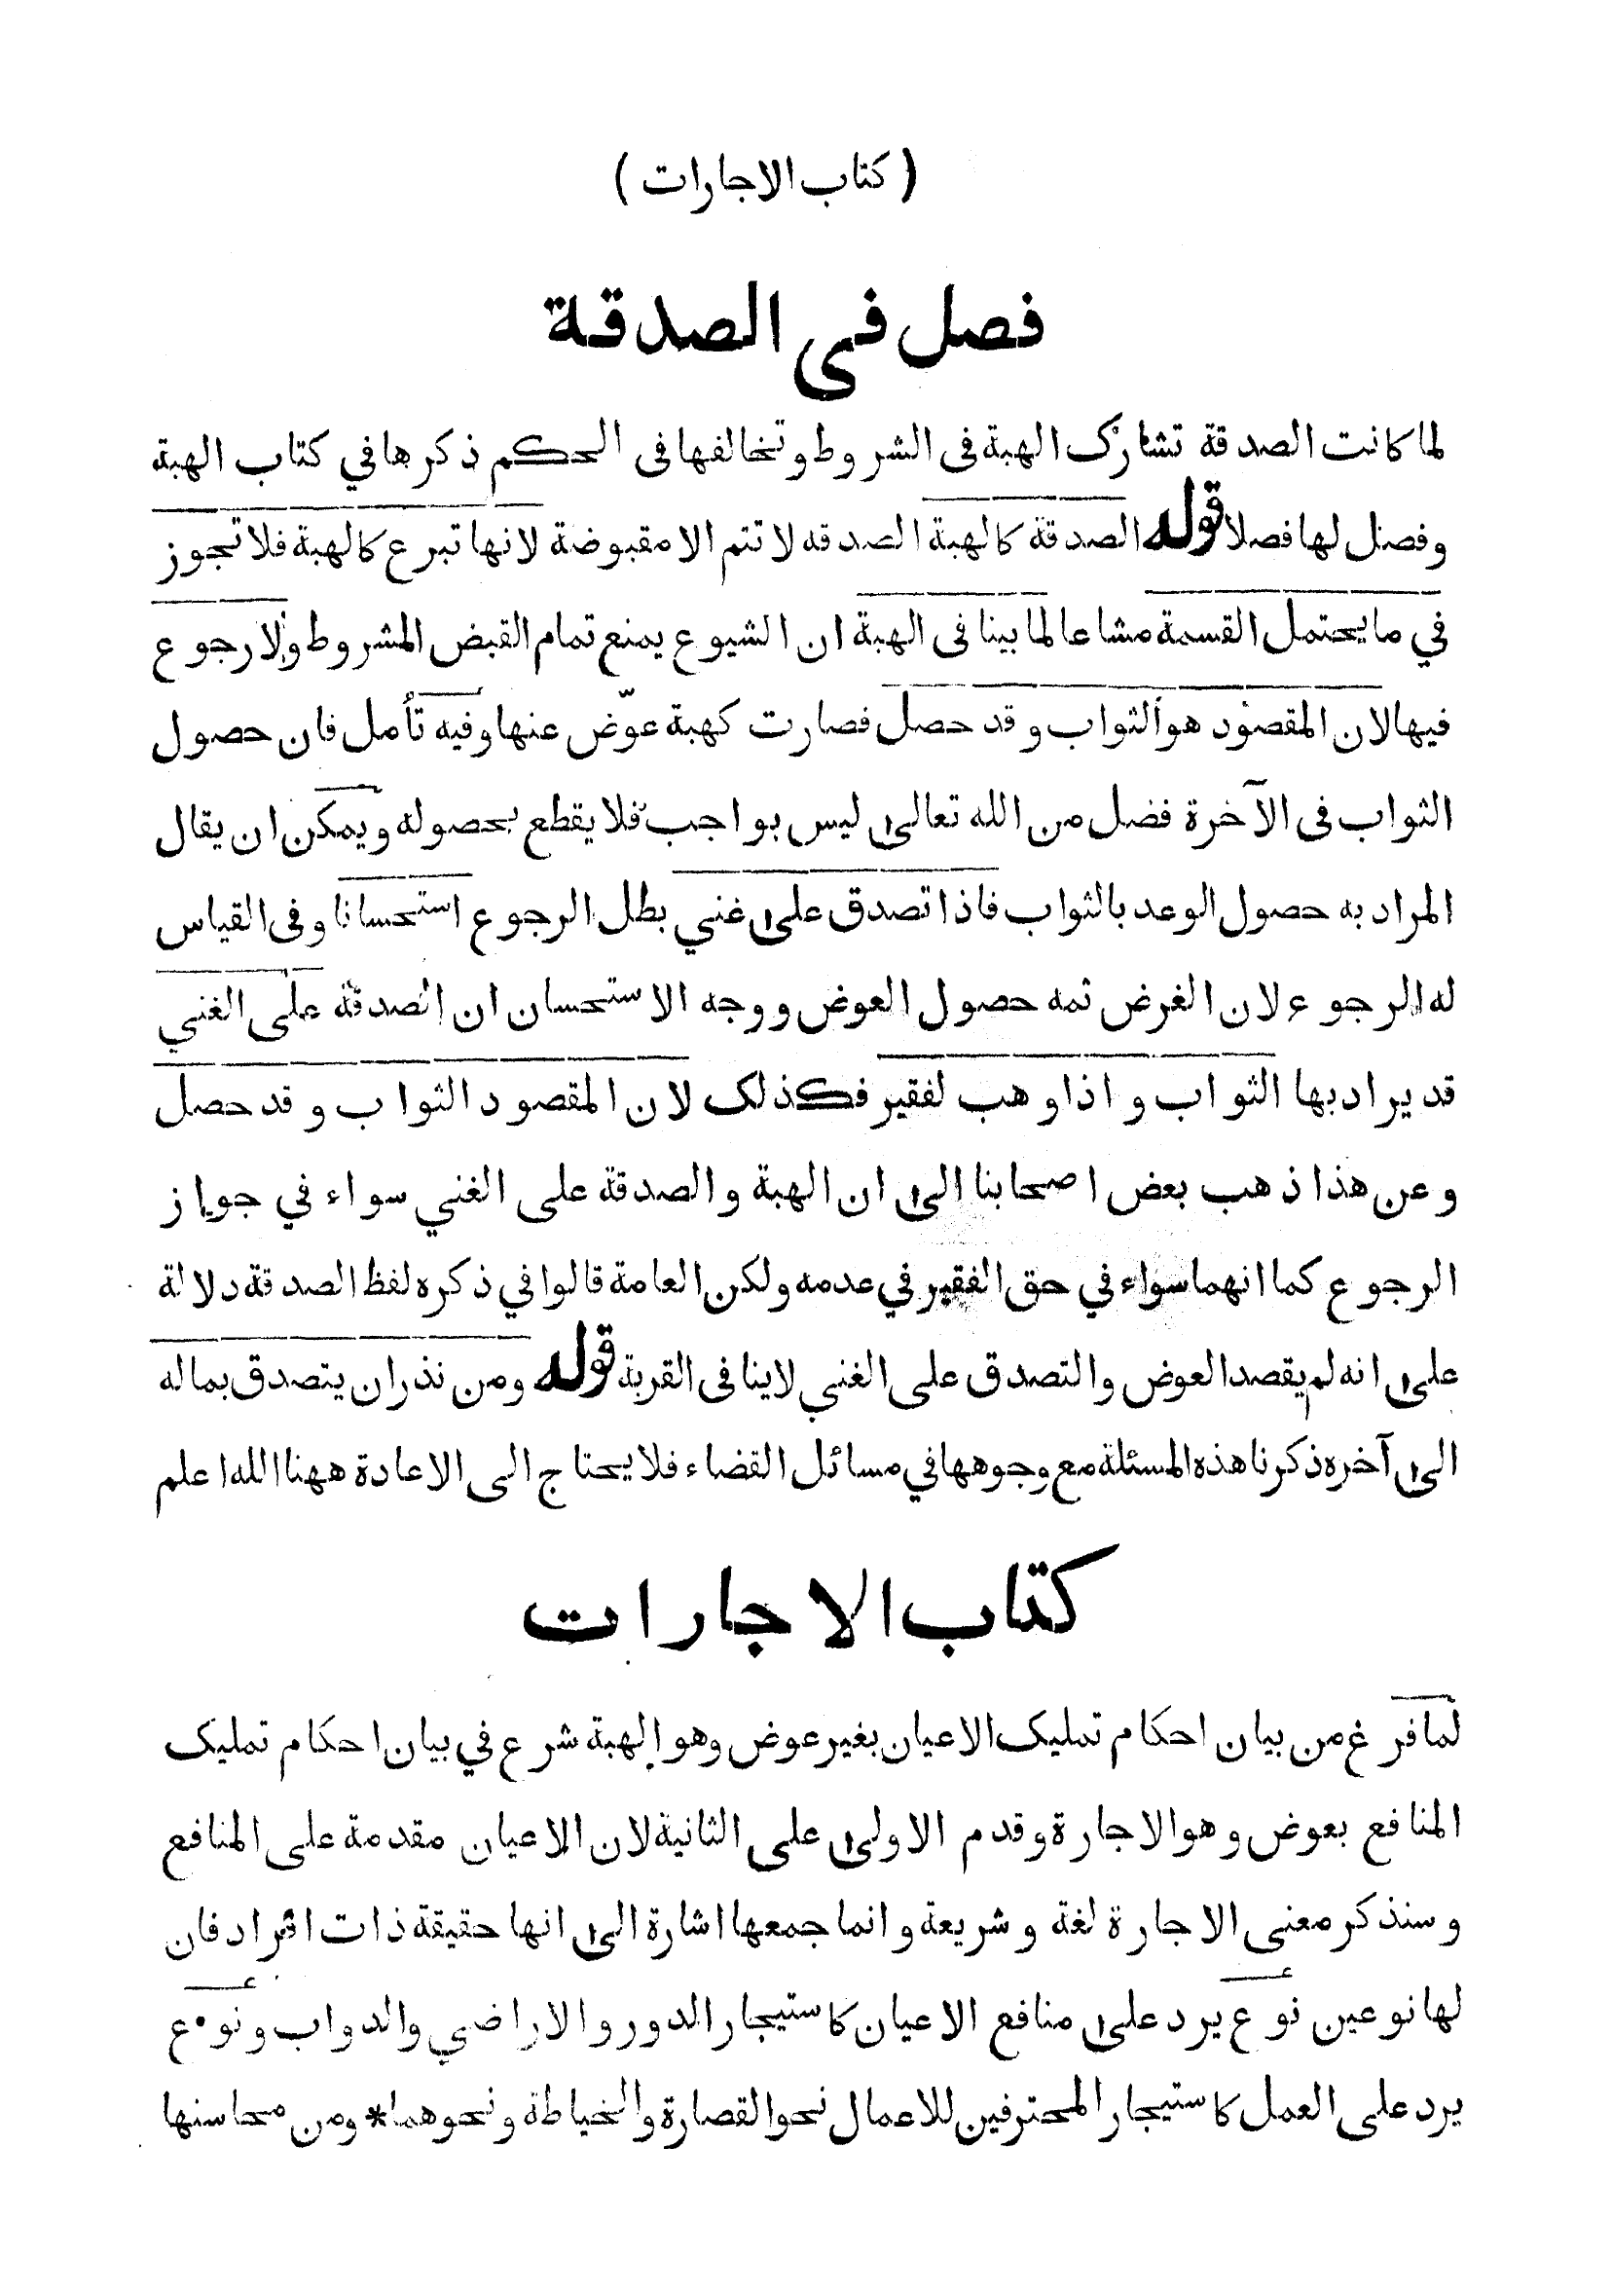 ( كتاب الاجارات )
فصل في الصدقة
لما كانت الصدقة تشارك الهبة في الشروط وتخالفها في الحكم ذكرها في كتاب الهبة
وفصل لها فصلا قوله الصدقة كالهبة الصدقه لا تتم الا مقبوضة لانها تبرع كالهبة فلا تجوز
في ما يحتمل القسمة مشاعا لما بينا في الهبة ان الشيوع يمنع تمام القبض المشروط ولا رجوع
فيها لان المقصود هو الثواب وقد حصل فصارت كهبة عوّض عنها وفيه تأمل فان حصول
الثواب في الآخرة فضل من الله تعالى ليس بواجب فلا يقطع بحصوله ويمكن ان يقال
المراد به حصول الوعد بالثواب فاذا تصدق على غني بطل الرجوع استحسانا وفي القياس
له الرجوع لان الغرض ثمه حصول العوض ووجه الاستحسان ان الصدقة على الغني
قد يراد بها الثواب واذا وهب لفقير فكذلك لان المقصود الثواب وقد حصل
وعن هذا ذهب بعض اصحابنا الى ان الهبة والصدقة على الغني سواء في جواز
الرجوع كما انهما سواء في حق الفقير في عدمه ولكن العامة قالوا في ذكره لفظ الصدقة دلالة
على انه لم يقصد العوض والتصدق على الغني لا ينافى القربة قوله ومن نذران يتصدق بماله
الى آخره ذكرنا هذه المسئلة مع وجوهها في مسائل القضاء فلا يحتاج الى الاعادة ههنا الله اعلم
كتاب الاجارات
لما فرغ من بيان احكام تمليك الاعيان بغير عوض وهو الهبة شرع في بيان احكام تمليك
المنافع بعوض وهو الاجارة وقدم الاولى على الثانية لان الاعيان مقدمة على المنافع
وسنذكر معنى الاجارة لغة وشريعة وانما جمعها اشارة الى انها حقيقة ذات افراد فان
لها نوعين نوع يرد على منافع الاعيان كاستيجار الدور والاراضي والدواب ونوع
يرد على العمل كاستيجار المحترفين للاعمال نحو القصارة والخياطة ونحوهما * ومن محاسنها